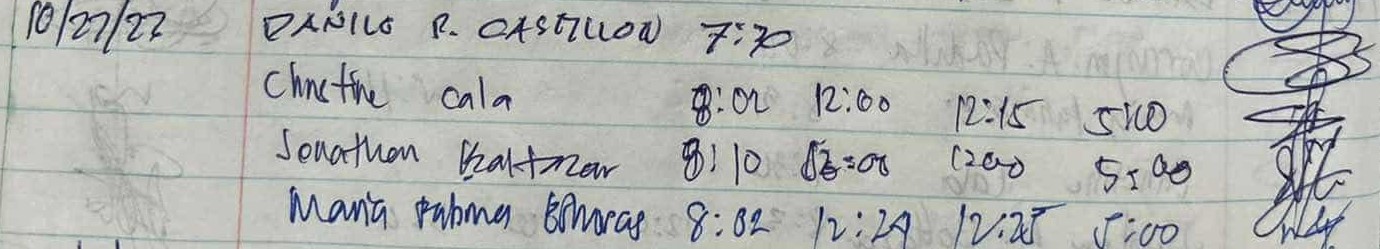 10/27/22 DANILO R. CASTILLON 7:30
Christine Cala 8:02 12:00 12:15 5:00
Jonathan Baltazar 8:10 12:00 1200 5:00
Maria 8:02 12:24 12:25 5:00